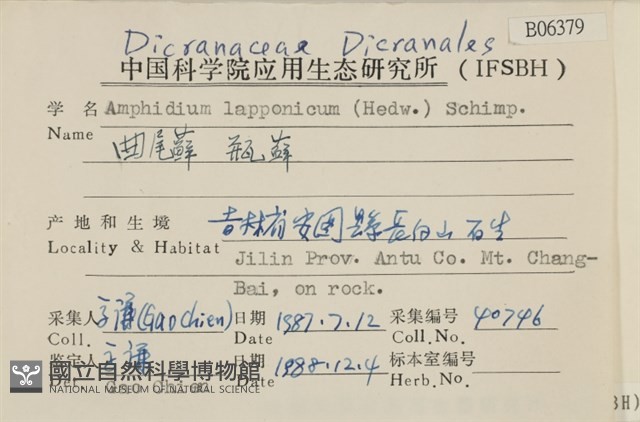 B06379
Dicranaceae Dicranales
中国科学院应用生态研究所 (IFSBH)
学 名 Amphidium lapponicum (Hedw.) Schimp.
Name
曲尾蘚 瓶蘚
产 地 和 生 境 吉林省安图縣長白山 石生
Locality & Habitat Jilin Prov. Antu Co. Mt. Chang-
Bai, on rock.
采集人 谦(Gao Chien) 日期 1987.7.12 采集编号 40746
Coll. Date Coll.No.
鉴定人 谦 日期 1988.12.4 标本室编号
Det. Date Herb.No.
國立自然科學博物館
NATIONAL MUSEUM OF NATURAL SCIENCE
BH)